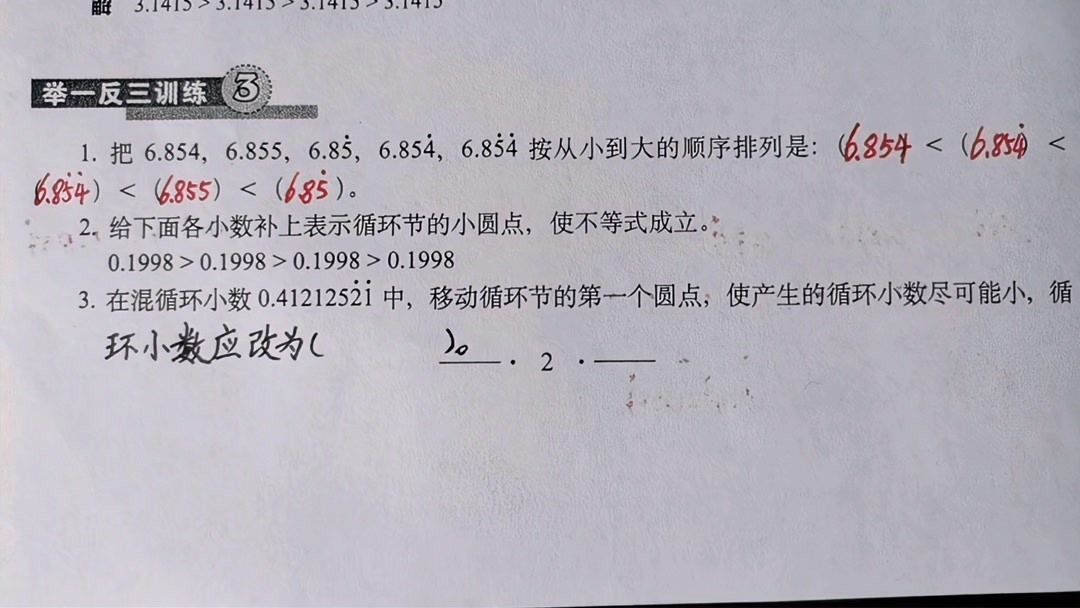 解 3.1415 > 3.1415 > 3.1415 > 3.1415
举一反三训练 3
1. 把 6.854, 6.855, 6.85̇, 6.854̇, 6.85̇4̇ 按从小到大的顺序排列是: (6.854 < (6.854̇) <
(6.85̇4̇) < (6.855) < (6.85̇)。
2. 给下面各小数补上表示循环节的小圆点, 使不等式成立。
0.1998 > 0.1998 > 0.1998 > 0.1998
3. 在混循环小数 0.4121252̇1̇ 中, 移动循环节的第一个圆点, 使产生的循环小数尽可能小, 循
环小数应改为( )。
· 2 ·